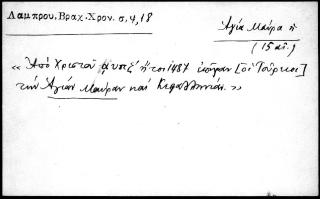 Λαμπρου, Βραχ. Χρον. σ, 4, 18
Ἁγία Μαύρα ἡ
(15 αἰ.)
« Ἀπὸ Χριστοῦ ἤτοι 1487 ἐπῆραν [οἱ Τοῦρκοι]
τὴν Ἁγίαν Μαύραν καὶ Κεφαλληνίαν. »